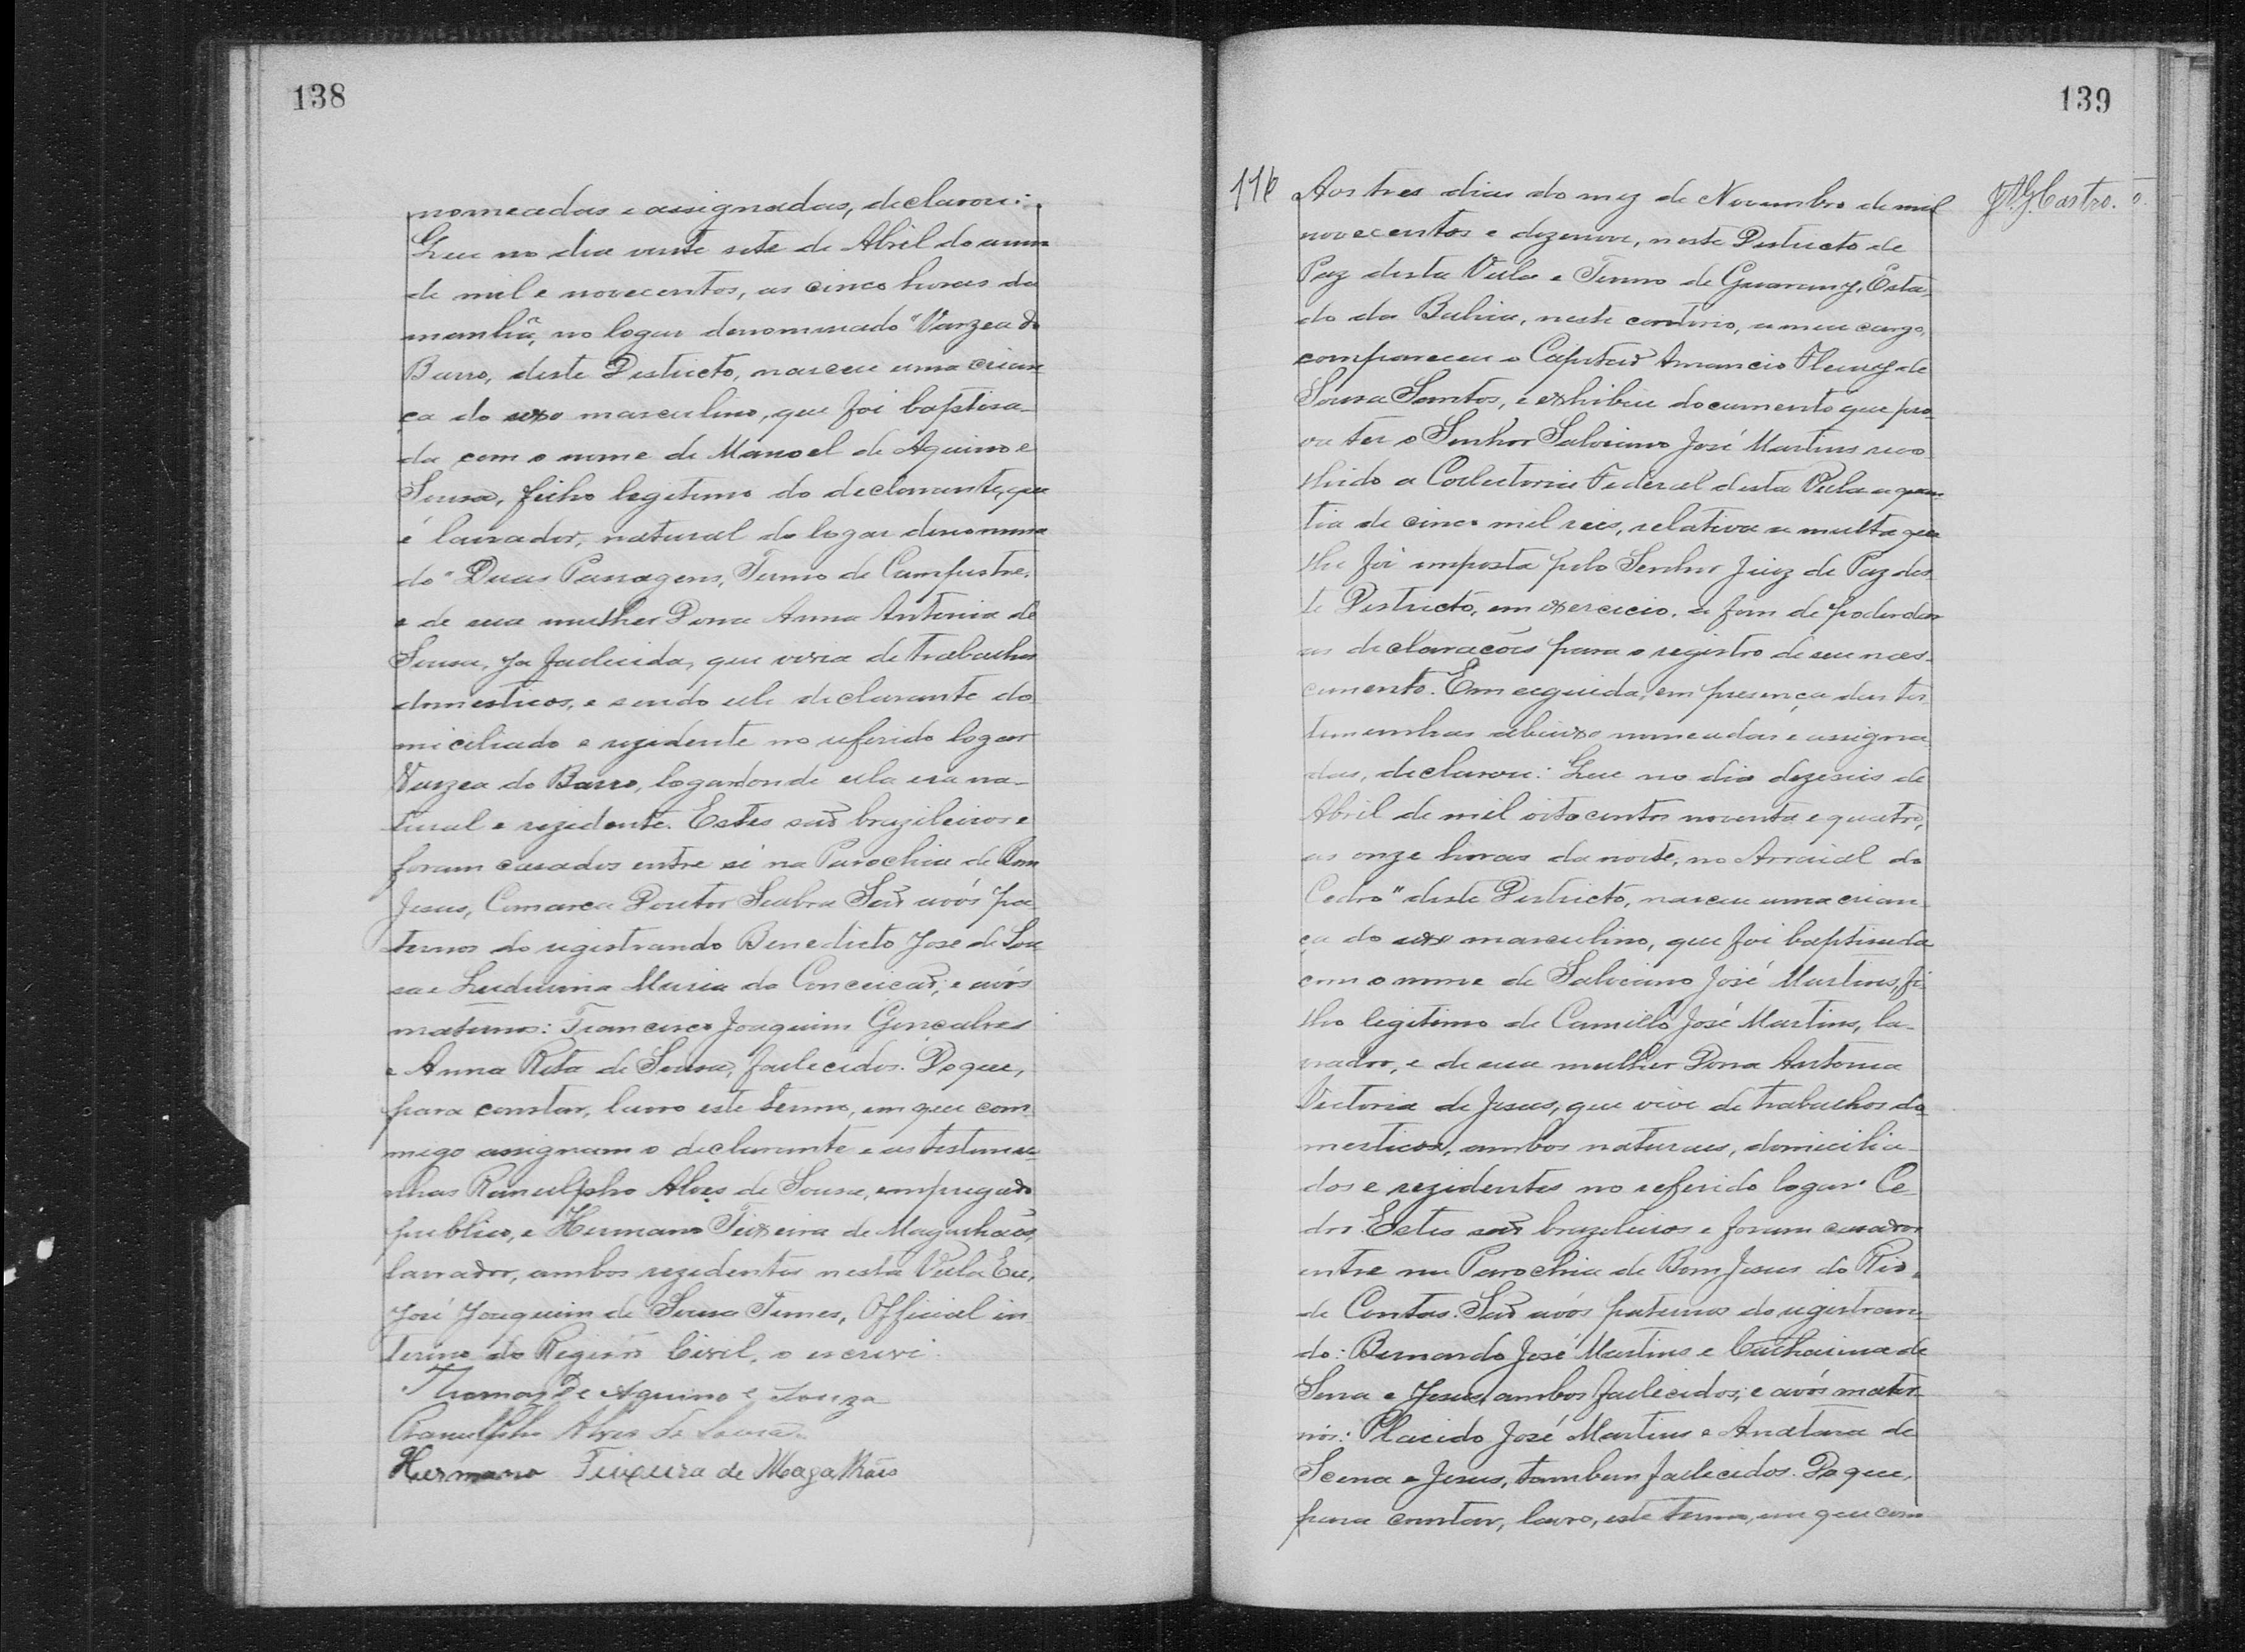 138
nomeadas e assignadas, declarou:
Que no dia vinte sete de Abril do anno
de mil e novecentos, as cinco horas da
manhã, no logar denominado "Varzea do
Barro, deste Districto, nasceu uma crian
ça do sexo masculino, que foi baptisa-
da com o nome de Manoel de Aquino e
Sousa, filho legitimo do declarante, que
é lavrador, natural do logar denomina
do "Duas Passagens, Termo de Campestre,
e de sua mulher Dona Anna Antonia de
Sousa, ja fallecida, que vivia de trabalhos
domesticos, e sendo elle declarante do
miciliado e rezidente no referido logar
Varzea do Barro, logar donde ella era na-
tural e rezidente. Estes são brazileiros e
foram casados entre si na Parochia de Bom
Jesus, Comarca Doutor Seabra São avós pa
ternos do registrando Benedicto José de Sou
sa e Maria da Conceicão, e avós
maternos: Francisco Joaquim Gonçalves
e Anna Rita de Sousa, fallecidos. Do que,
para constar, lavro este termo, em que com
migo assignam o declarante e as testemu
nhas Ranulpho Alves de Sousa, empregado
publico, e Hermano Teixeira de Magalhães,
lavrador, ambos rezidentes nesta Villa Eu,
José Joaquim de Sousa Official in
terino do Registro Civil, o escrevi.
Thomaz de Aquino e Souza
Ranulpho Alves de Sousa
Hermano Teixeira de Magalhães
139
116
Aos tres dias do mez de Novembro de mil
novecentos e dezenove, neste Districto de
Paz desta Villa e Termo de Guarany, Esta,
do da Bahia, neste cartorio, a meu cargo,
compareceu o Capitão Amancio Fleury de
Sousa Santos, e exhibiu documento que pro
va ter o Senhor Salviano José Martins reco
lhido a Collectoria Federal desta Villa a quan
tia de cinco mil reis, relativa a multa que
lhe foi imposta pelo Senhor Juiz de Paz des
te Districto, em exercicio, a fim de poder dar
as declaracões para o registro de seu nas-
cimento. Em seguida, em presença das tes
temunhas abaixo nomeadas e assigna
das, declarou: Que no dia dezeseis de
Abril de mil oitocentos noventa e quatro,
as onze horas da noite, no Arraial do
Cedro" deste Districto, nasceu uma crian
ça do sexo masculino, que foi baptisada
com o nome de Salviano José Martins, fi-
lho legitimo de Camillo José Martins, la-
vrador, e de sua mulher Dona Antonia
Victoria de Jesus, que vive de trabalhos do
mesticos, ambos naturaes, domicilia-
dos e rezidentes no referido logar Ce-
dro. Estes são brazileiros e foram casados
entre na Parochia de Bom Jesus do Rio
de Contas. São avós paternos do registran-
do: Bernardo José Martins e de
Sena e Jesus, ambos fallecidos; e avós mater
nos: Placido José Martins e de
Scena e Jesus, tambem fallecidos. Do que,
para constar, lavro, este termo, em que com
Castro.